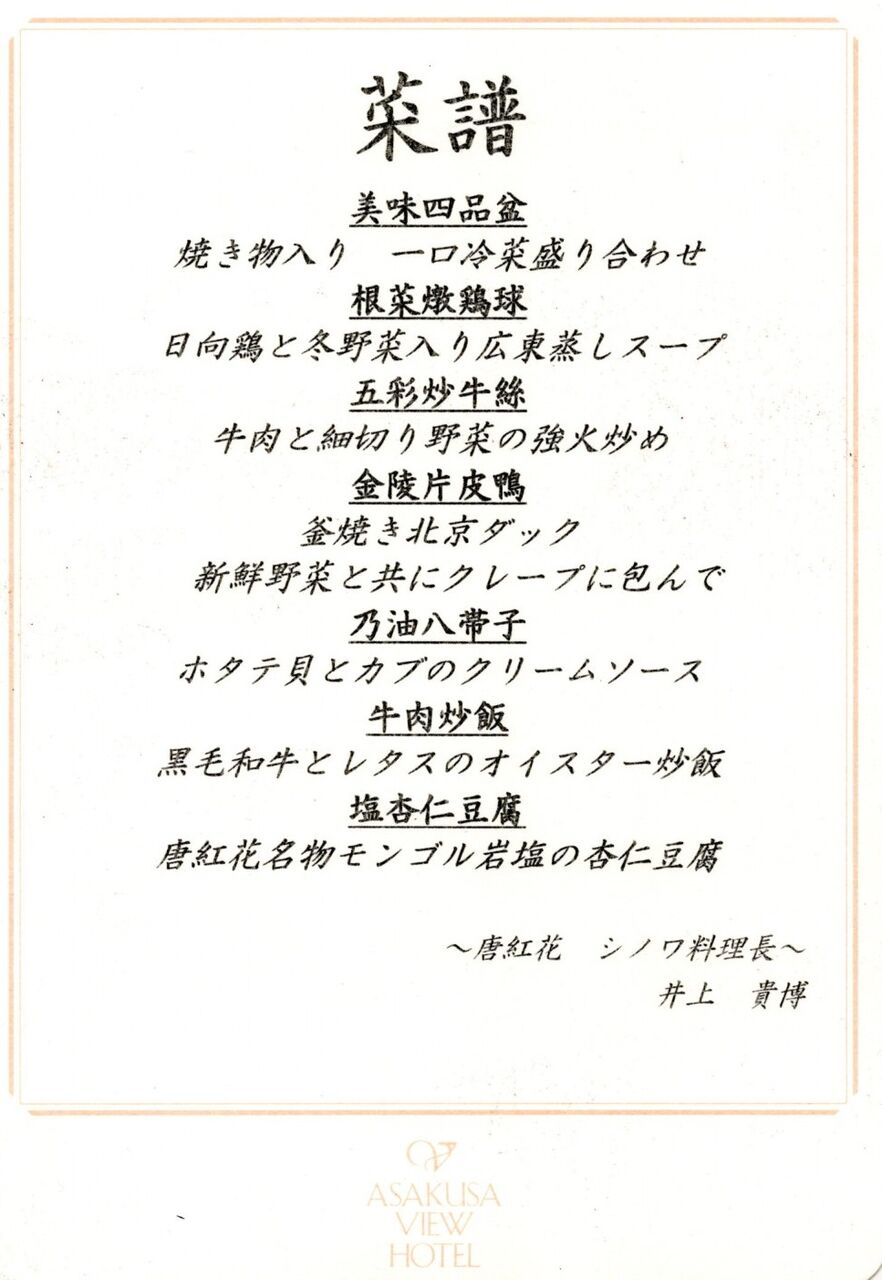 菜譜
美味四品盆
焼き物入り　一口冷菜盛り合わせ
根菜燉鶏球
日向鶏と冬野菜入り広東蒸しスープ
五彩炒牛絲
牛肉と細切り野菜の強火炒め
金陵片皮鴨
釜焼き北京ダック
新鮮野菜と共にクレープに包んで
乃油八帯子
ホタテ貝とカブのクリームソース
牛肉炒飯
黒毛和牛とレタスのオイスター炒飯
塩杏仁豆腐
唐紅花名物モンゴル岩塩の杏仁豆腐
～唐紅花　シノワ料理長～
井上　貴博
ASAKUSA
VIEW
HOTEL